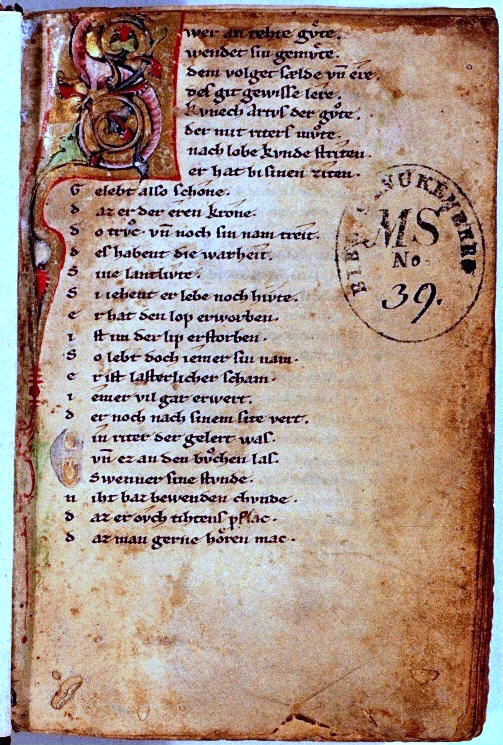 Swer an rehte gůte.
wendet sin gemvͦte.
dem volget sælde vn̄ ere.
des git gewisse lere.
kvnech Artvs der gůte.
der mit riters mvͦte.
nach lobe kvnde striten.
er hat bi sinen ziten.
G elebt also schône.
d az er der eren krone.
d o trvͦc. vn̄ noch sin nam treit.
d es habent die warheit.
S ine lantlivte.
S i iehent er lebe noch hivte.
e r hat den lop erworben.
i st im der lip erstorben.
S o lebt doch iemer sin nam.
e r ist lasterlicher scham.
i emer vil gar erwert.
d er noch nach sinem site vert.
Ein riter der gelert was.
vn̄ ez an den bvͦchen las.
Swenner sine stvnde.
n iht baz bewenden chvnde.
d az er ovch tihtens pflac.
d az man gerne hôren mac.
MS
No
39.